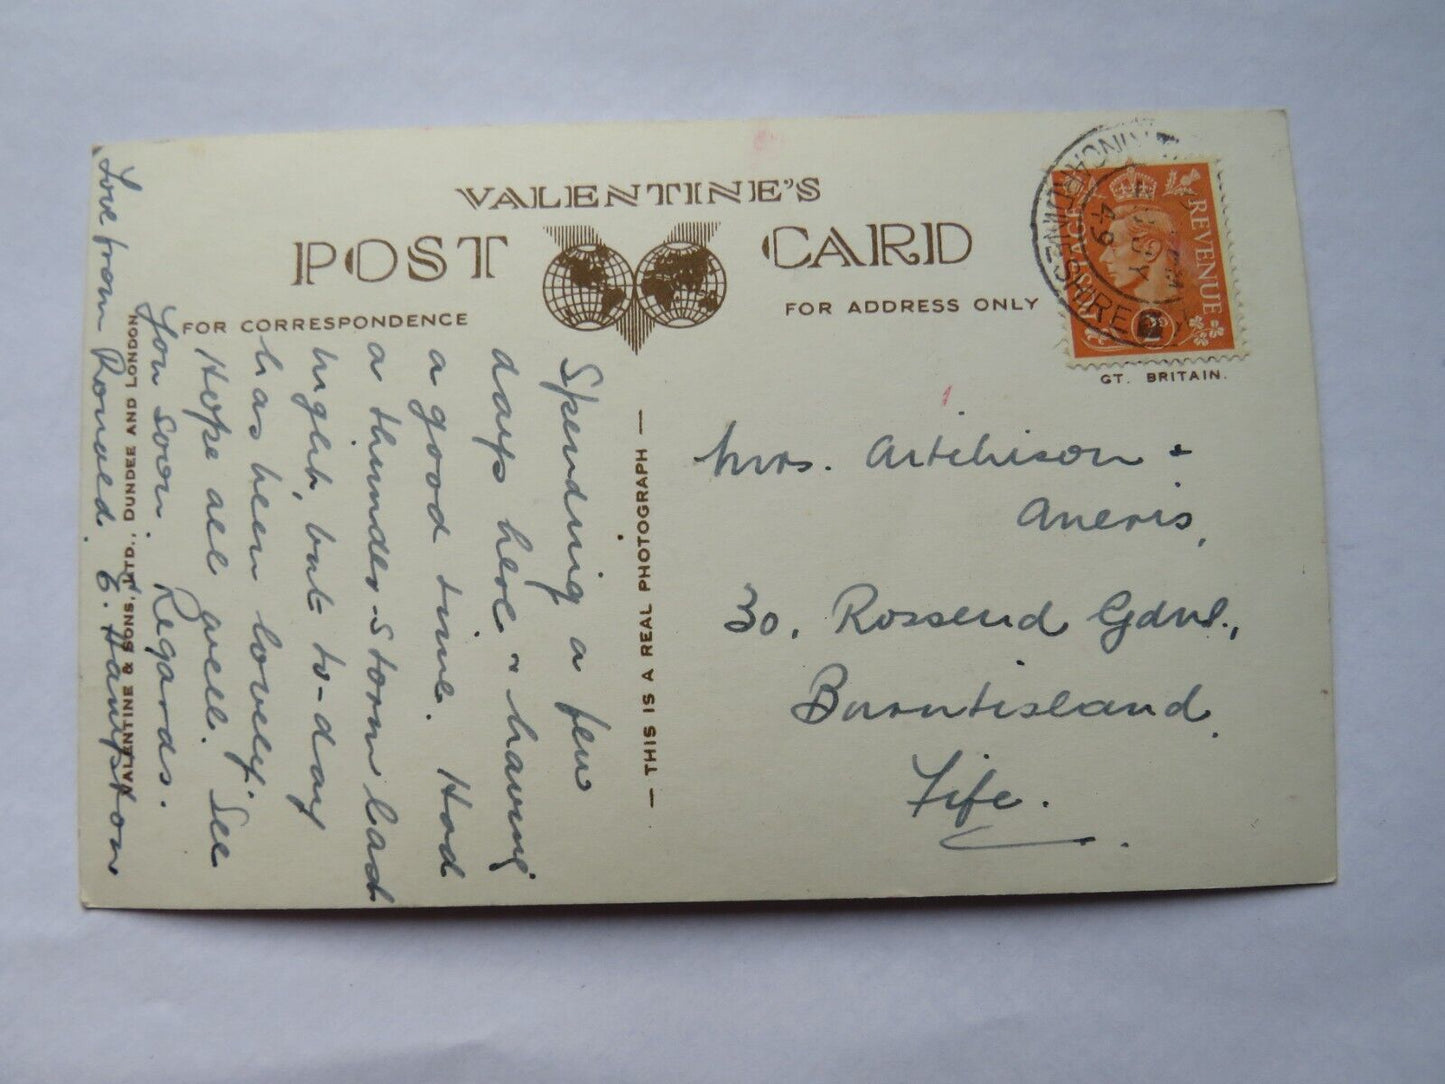 VALENTINE'S
POST CARD
FOR CORRESPONDENCE
FOR ADDRESS ONLY
REVENUE
POSTAGE
49
SHIRE
GT. BRITAIN.
Spending a few
days here & having
a good time. Had
a thunder-storm last
night, but to-day
has been lovely.
Hope all well. See
You soon. Regards.
Love from Ronald. E. Hampston
VALENTINE & SONS, LTD., DUNDEE AND LONDON
— THIS IS A REAL PHOTOGRAPH —
1
Mrs. Aitchison +
30, Rossend Gdns.,
Burntisland.
Fife.